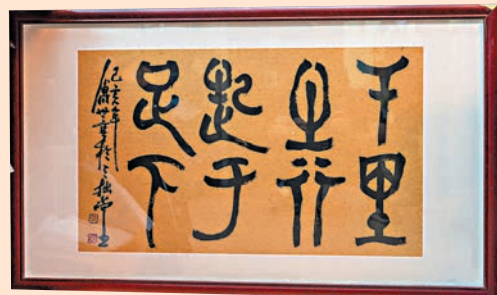 千里
之行
起于
足下
己亥年